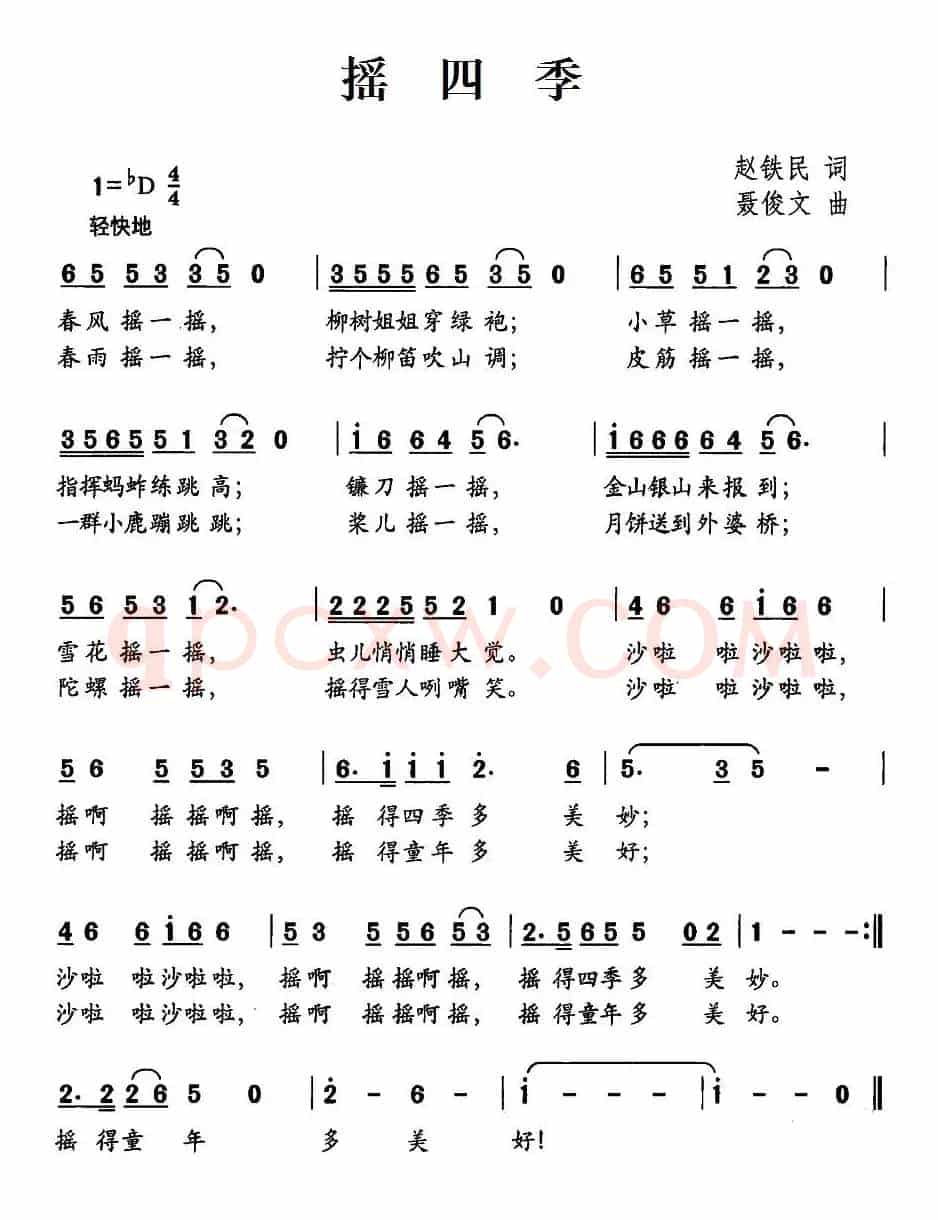 摇四季
赵铁民 词
1=♭D 4/4
聂俊文 曲
轻快地
6 5 5 3 3 5 0 | 3 5 5 5 6 5 3 5 0 | 6 5 5 1 2 3 0 |
春风摇一摇， 柳树姐姐穿绿袍； 小草摇一摇，
春雨摇一摇， 拧个柳笛吹山调； 皮筋摇一摇，
3 5 6 5 5 1 3 2 0 | i 6 6 4 5 6. | i 6 6 6 6 4 5 6. |
指挥蚂蚱练跳高； 镰刀摇一摇， 金山银山来报到；
一群小鹿蹦跳跳； 桨儿摇一摇， 月饼送到外婆桥；
5 6 5 3 1 2. | 2 2 2 5 5 2 1 0 | 4 6 6 i 6 6 |
雪花摇一摇， 虫儿悄悄睡大觉。 沙啦 啦沙啦啦，
陀螺摇一摇， 摇得雪人咧嘴笑。 沙啦 啦沙啦啦，
5 6 5 5 3 5 | 6. i i i 2. 6 | 5. 3 5 - |
摇啊 摇摇啊摇， 摇得四季多 美妙；
摇啊 摇摇啊摇， 摇得童年多 美好；
4 6 6 i 6 6 | 5 3 5 5 6 5 3 | 2. 5 6 5 5 0 2 | 1 - - - :‖
沙啦 啦沙啦啦， 摇啊 摇摇啊摇， 摇得四季多 美妙。
沙啦 啦沙啦啦， 摇啊 摇摇啊摇， 摇得童年多 美好。
2. 2 2 6 5 0 | 2 - 6 - | i - - - | i - - 0 ‖
摇得童年 多美 好！
qpcxw.COM